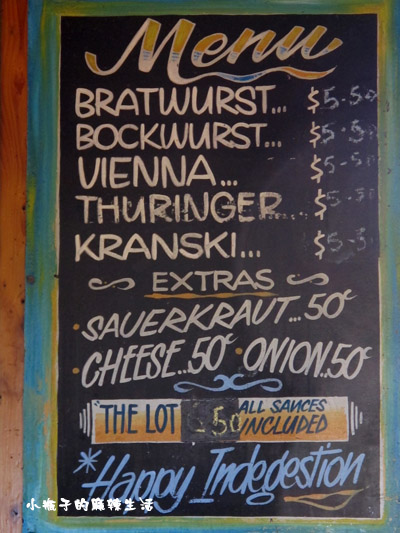 Menu
BRATWURST... $5.50
BOCKWURST... $5.50
VIENNA... $5.50
THURINGER... $5.50
KRANSKI... $5.5
EXTRAS
• SAUERKRAUT... 50¢
• CHEESE... 50¢ • ONION.. 50¢
"THE LOT .50 ALL SAUCES INCLUDED
*Happy Indegestion
小瓶子的麻辣生活